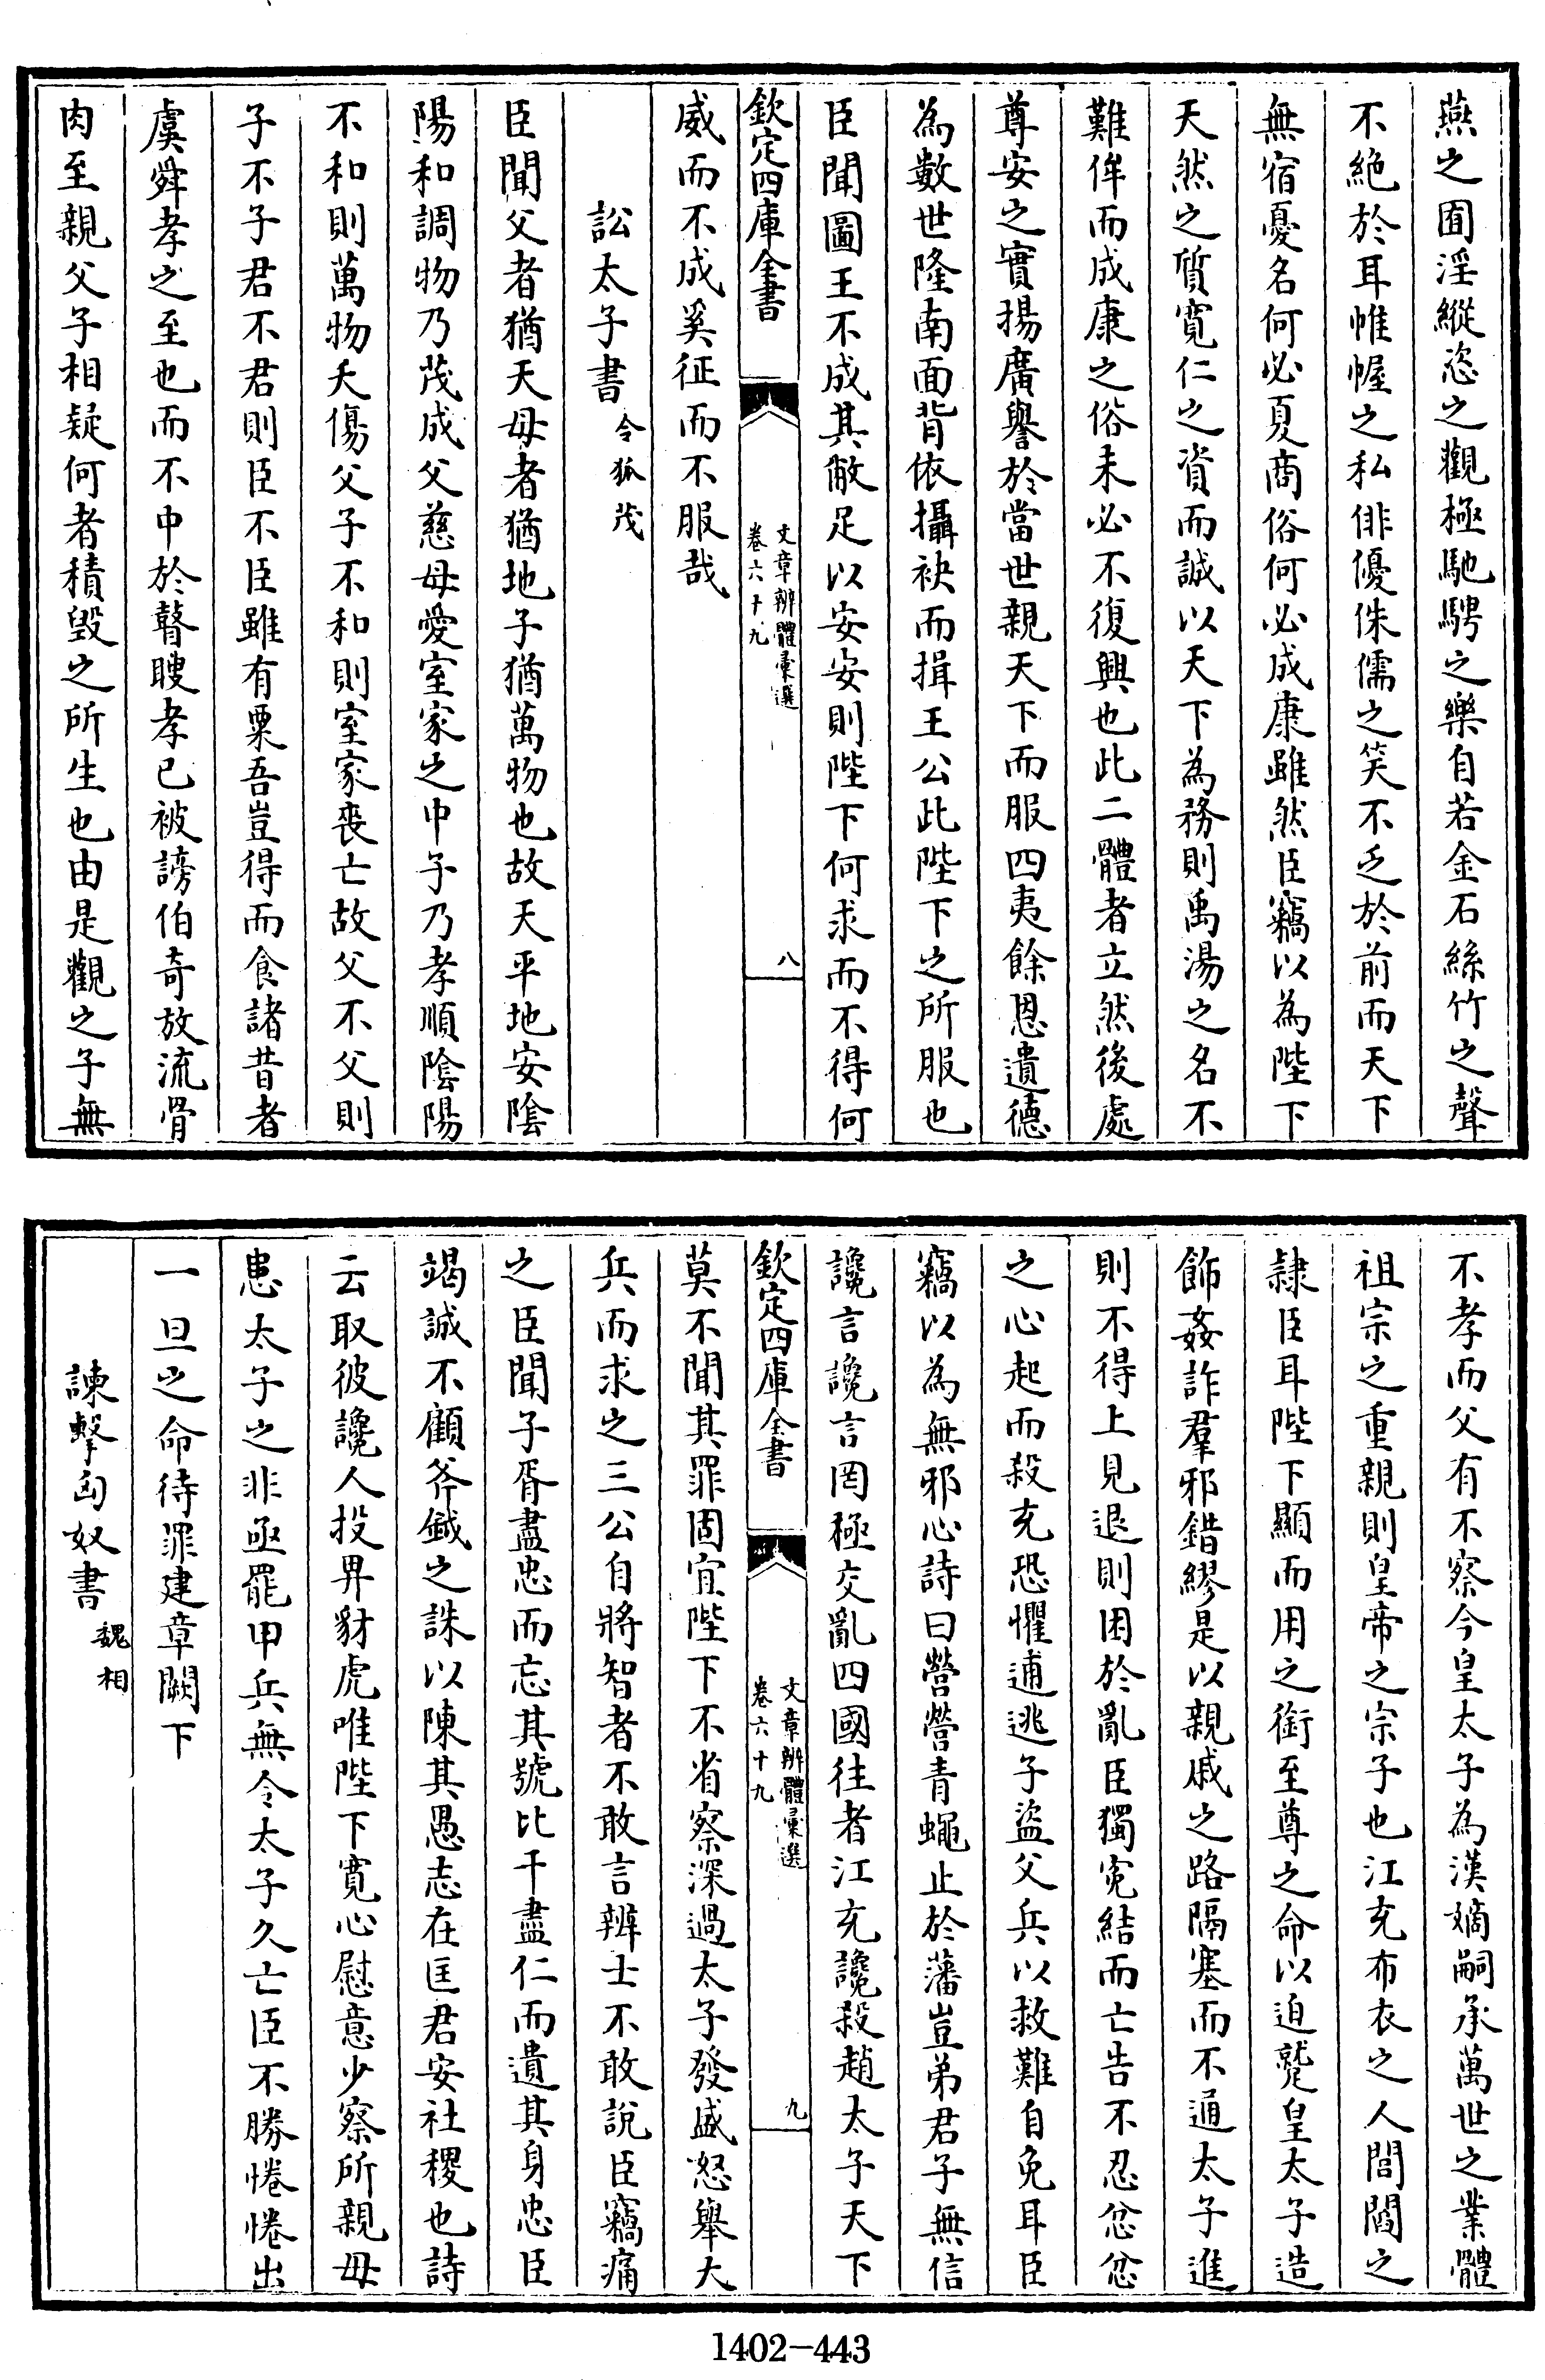 燕之囿淫縱恣之觀極馳騁之樂自若金石絲竹之聲
不絶於耳帷幄之私俳優侏儒之笑不乏於前而天下
無宿憂名何必夏商俗何必成康雖然臣竊以為陛下
天然之質寛仁之資而誠以天下為務則禹湯之名不
難侔而成康之俗未必不復興也此二體者立然後處
尊安之實揚廣譽於當世親天下而服四夷餘恩遺德
為數世隆南面背依攝袂而揖王公此陛下之所服也
臣聞圖王不成其敝足以安安則陛下何求而不得何
欽定四庫全書
文章辨體彙選
卷六十九
八
威而不成奚征而不服哉
訟太子書令狐茂
臣聞父者猶天母者猶地子猶萬物也故天平地安陰
陽和調物乃茂成父慈母愛室家之中子乃孝順陰陽
不和則萬物夭傷父子不和則室家喪亡故父不父則
子不子君不君則臣不臣雖有粟吾豈得而食諸昔者
虞舜孝之至也而不中於瞽瞍孝已被謗伯奇放流骨
肉至親父子相疑何者積毀之所生也由是觀之子無
不孝而父有不察今皇太子為漢嫡嗣承萬世之業體
祖宗之重親則皇帝之宗子也江充布衣之人閭閻之
隷臣耳陛下顯而用之銜至尊之命以迫蹵皇太子造
飾姦詐羣邪錯繆是以親戚之路隔塞而不通太子進
則不得上見退則困於亂臣獨寃結而亡告不忍忿忿
之心起而殺充恐懼逋逃子盜父兵以救難自免耳臣
竊以為無邪心詩曰營營青蠅止於藩豈弟君子無信
讒言讒言罔極交亂四國往者江充讒殺趙太子天下
欽定四庫全書
文章辨體彙選
卷六十九
九
莫不聞其罪固宜陛下不省察深過太子發盛怒舉大
兵而求之三公自將智者不敢言辨士不敢說臣竊痛
之臣聞子胥盡忠而忘其號比干盡仁而遺其身忠臣
竭誠不顧斧鉞之誅以陳其愚志在匡君安社稷也詩
云取彼讒人投畀豺虎唯陛下寛心慰意少察所親毋
患太子之非亟罷甲兵無令太子久亡臣不勝惓惓出
一旦之命待罪建章闕下
諫擊匈奴書魏相
1402-443